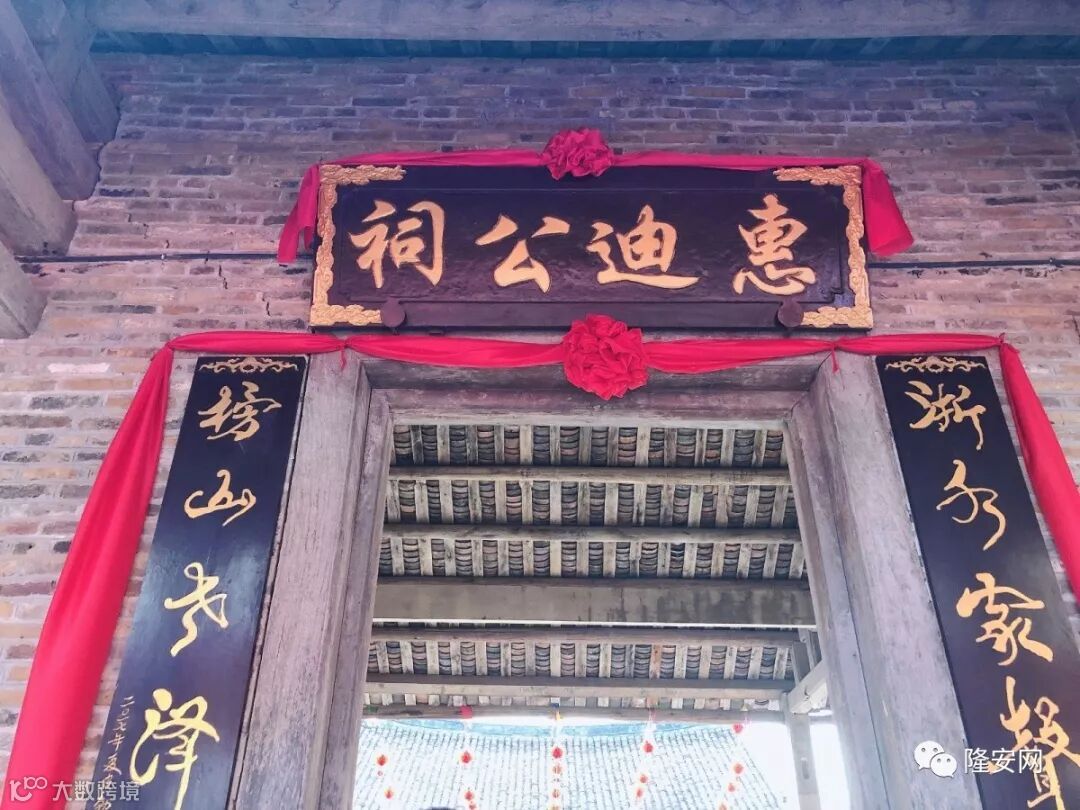 惠迪公祠
浙水家聲
榜山世泽
二〇一七年夏
隆安网
大数跨境